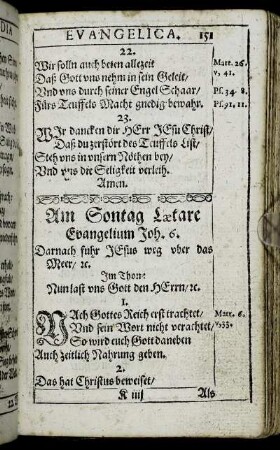 EVANGELICA. 151
22.
Wir solln auch beten allezeit Matt. 26.
Daß Gott vns nehm in sein Geleit/ v. 41.
Vnd vns durch seiner Engel Schaar/ Ps. 34. 8.
Fürs Teuffels Macht gnedig bewahr. Ps. 91. 11.
23.
WJr dancken dir HErr JEsu Christ/
Daß du zerstört des Teuffels List/
Steh vns in vnsern Nöthen bey/
Vnd vns die Seligkeit verleih.
Amen.
Am Sontag Lætare
Evangelium Joh. 6.
Darnach fuhr JEsus weg vber das
Meer/ ꝛc.
Jm Thon:
Nun last vns Gott den HErrn/ ꝛc.
1.
NAch Gottes Reich erst trachtet/ Matt. 6.
Vnd sein Wort nicht verachtet/ v. 33.
So wird euch Gott daneben
Auch zeitlich Nahrung geben.
2.
Das hat Christus beweiset/
K iiij Als